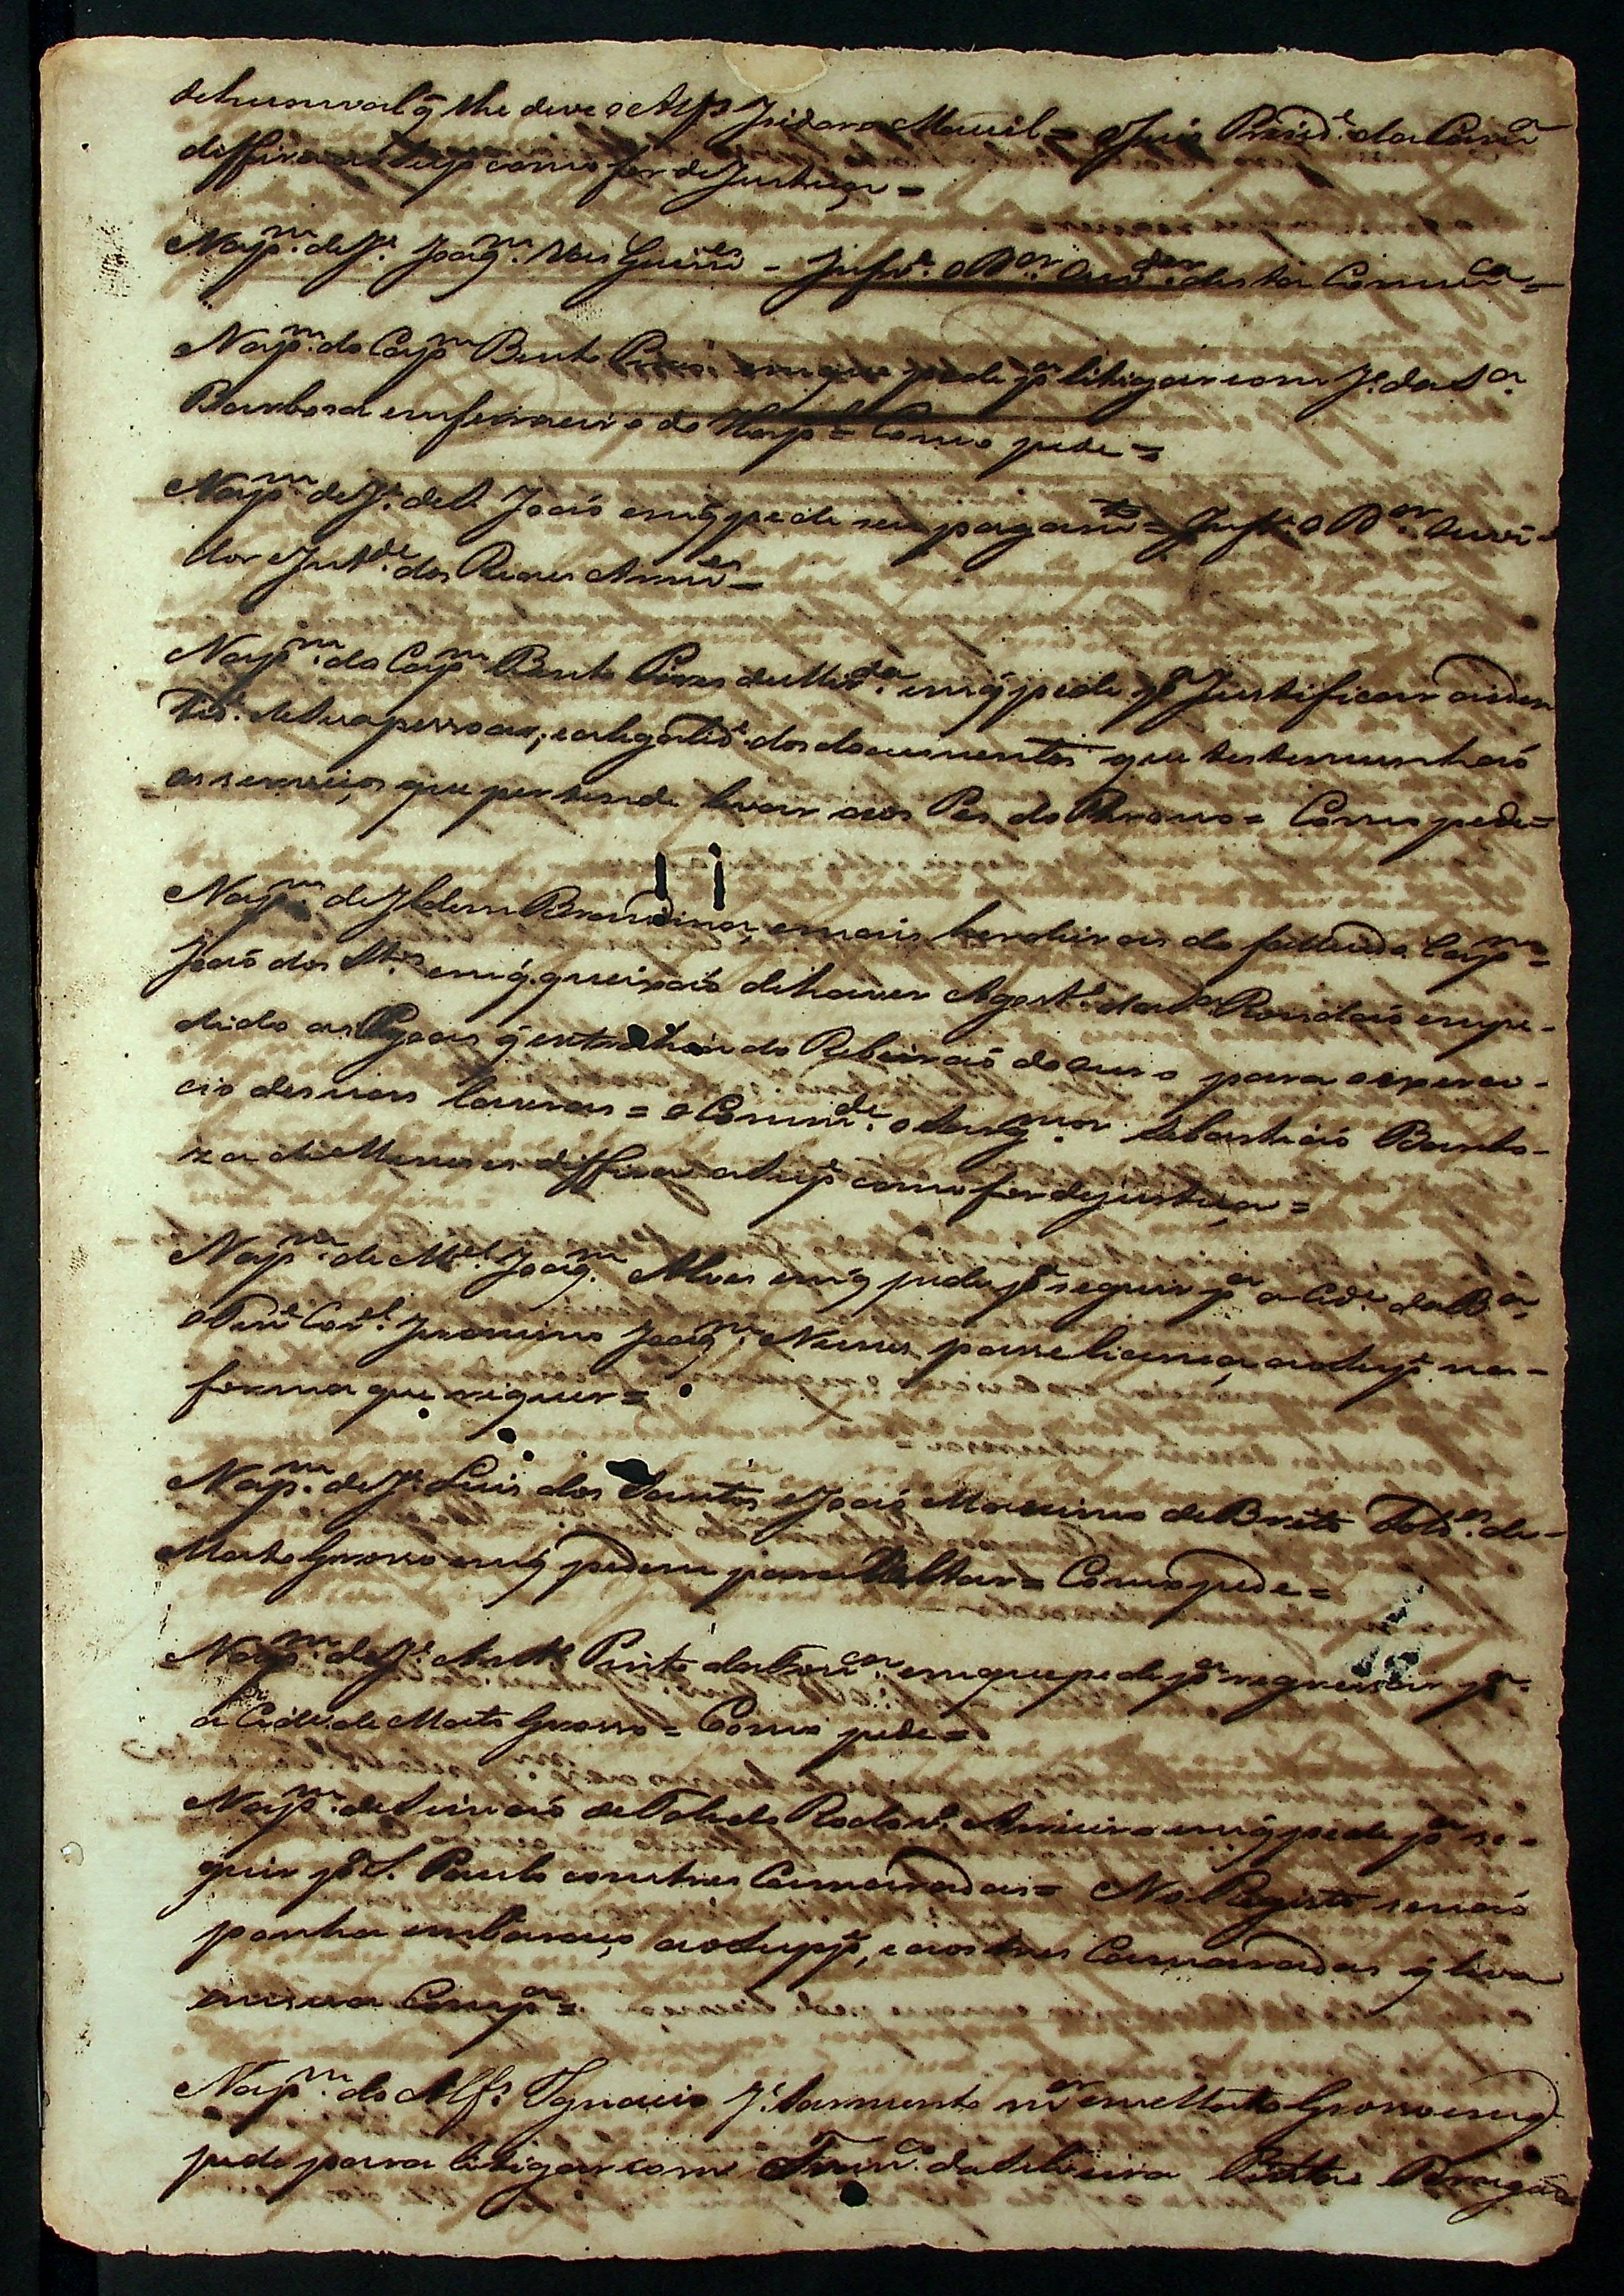 de hum val q̃ lhe deve o Alfs Isidoro Maciel = o Juis Prezid.e da Cam.a
diffira ao Sup.e como for de Justiça =
Na p.m de J.e Joaq.m Vas Guim.es - Inf.e o D.or Ouv.dor desta Comar.ca =
Na p.m do Cap.m Bento Pires em que pede p.a litigar com J.e da S.a
Barboza enfermeiro do Hosp.l = Como pede =
Na p.m de J.e de S. João em q̃ pede seu pagam.to = Inf.e o D.or Ouvi-
dor e Int.de dos Reaes Armz.es =
Na p.m do Cap.m Bento Pires de Mir.da em q̃ pede p.a Justificar a iden
tid.e de sua pessoa, e a legalid.e dos documentos que testemunhaõ
os serviços que pertende levar aos Pes do Throno = Como pede =
Na p.m de Ildem Brandina, e mais herdeiras do fallecido Cap.m
Joaõ dos S.tos em q̃ queixaõ de haver Agost.o da S.a Rondaõ empe-
dido as Agoas q̃ extrahia do Ribeiraõ do Ouro para o exerci-
cio de suas lavras = o Comm.de o Sarg.mor Sebastiaõ Barbo-
za de Menezes diffira a Sup.e como for de justiça =
Na p.m de M.el Joaq.m Alves em q̃ pede p.a seguir p.a a Cid.e da B.a
o Ten.e Cor.el Jeronimo Joaq.m Nunes passe licença ao Sup.e na
forma que requer =
Na p.m de J.e Luis dos Santos e Joaõ Maximo de Brito Sold.os de
Mato Grosso em q̃ pedem para Voltar = Como pede =
Na p.m de J.e An.to Pinto da Fon.ca em que pede p.a regressar p.a
a Cid.e de Mato Grosso = Como pede =
Na p.m de Simaõ de Toledo Rodov.o Arrieiro em q̃ pede p.a se-
guir p.a S. Paulo com tres Camaradas = No Registo se naõ
ponha embaraço ao Supp.e, e aos tres Camaradas q̃ leva
em sua Comp.a =
Na p.m do Alf.s Ignacio J.e Sarmento m.or em Mato Grosso em q̃
pede para litigar com Fran.co da Silveira Pinto e Bragan